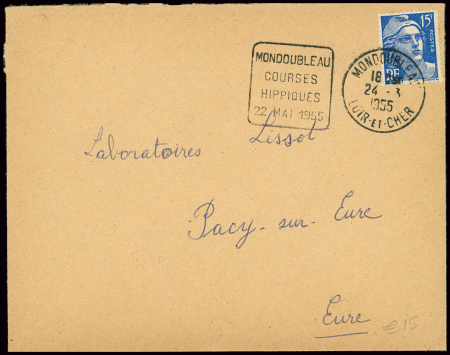 MONDOUBLEAU
COURSES
HIPPIQUES
22 MAI 1955
15F
POSTES
RF
MONDOUBLEAU
18
24 - 3
1955
LOIR-ET-CHER
Laboratoires Lissot
Pacy-sur-Eure
Eure
€15